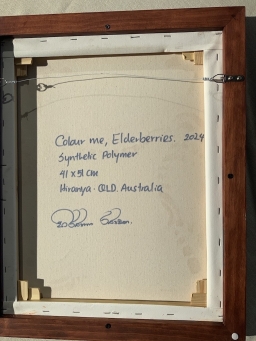 Colour me, Elderberries. 2024
Synthetic Polymer
41 x 51 cm
Hiranya. QLD. Australia